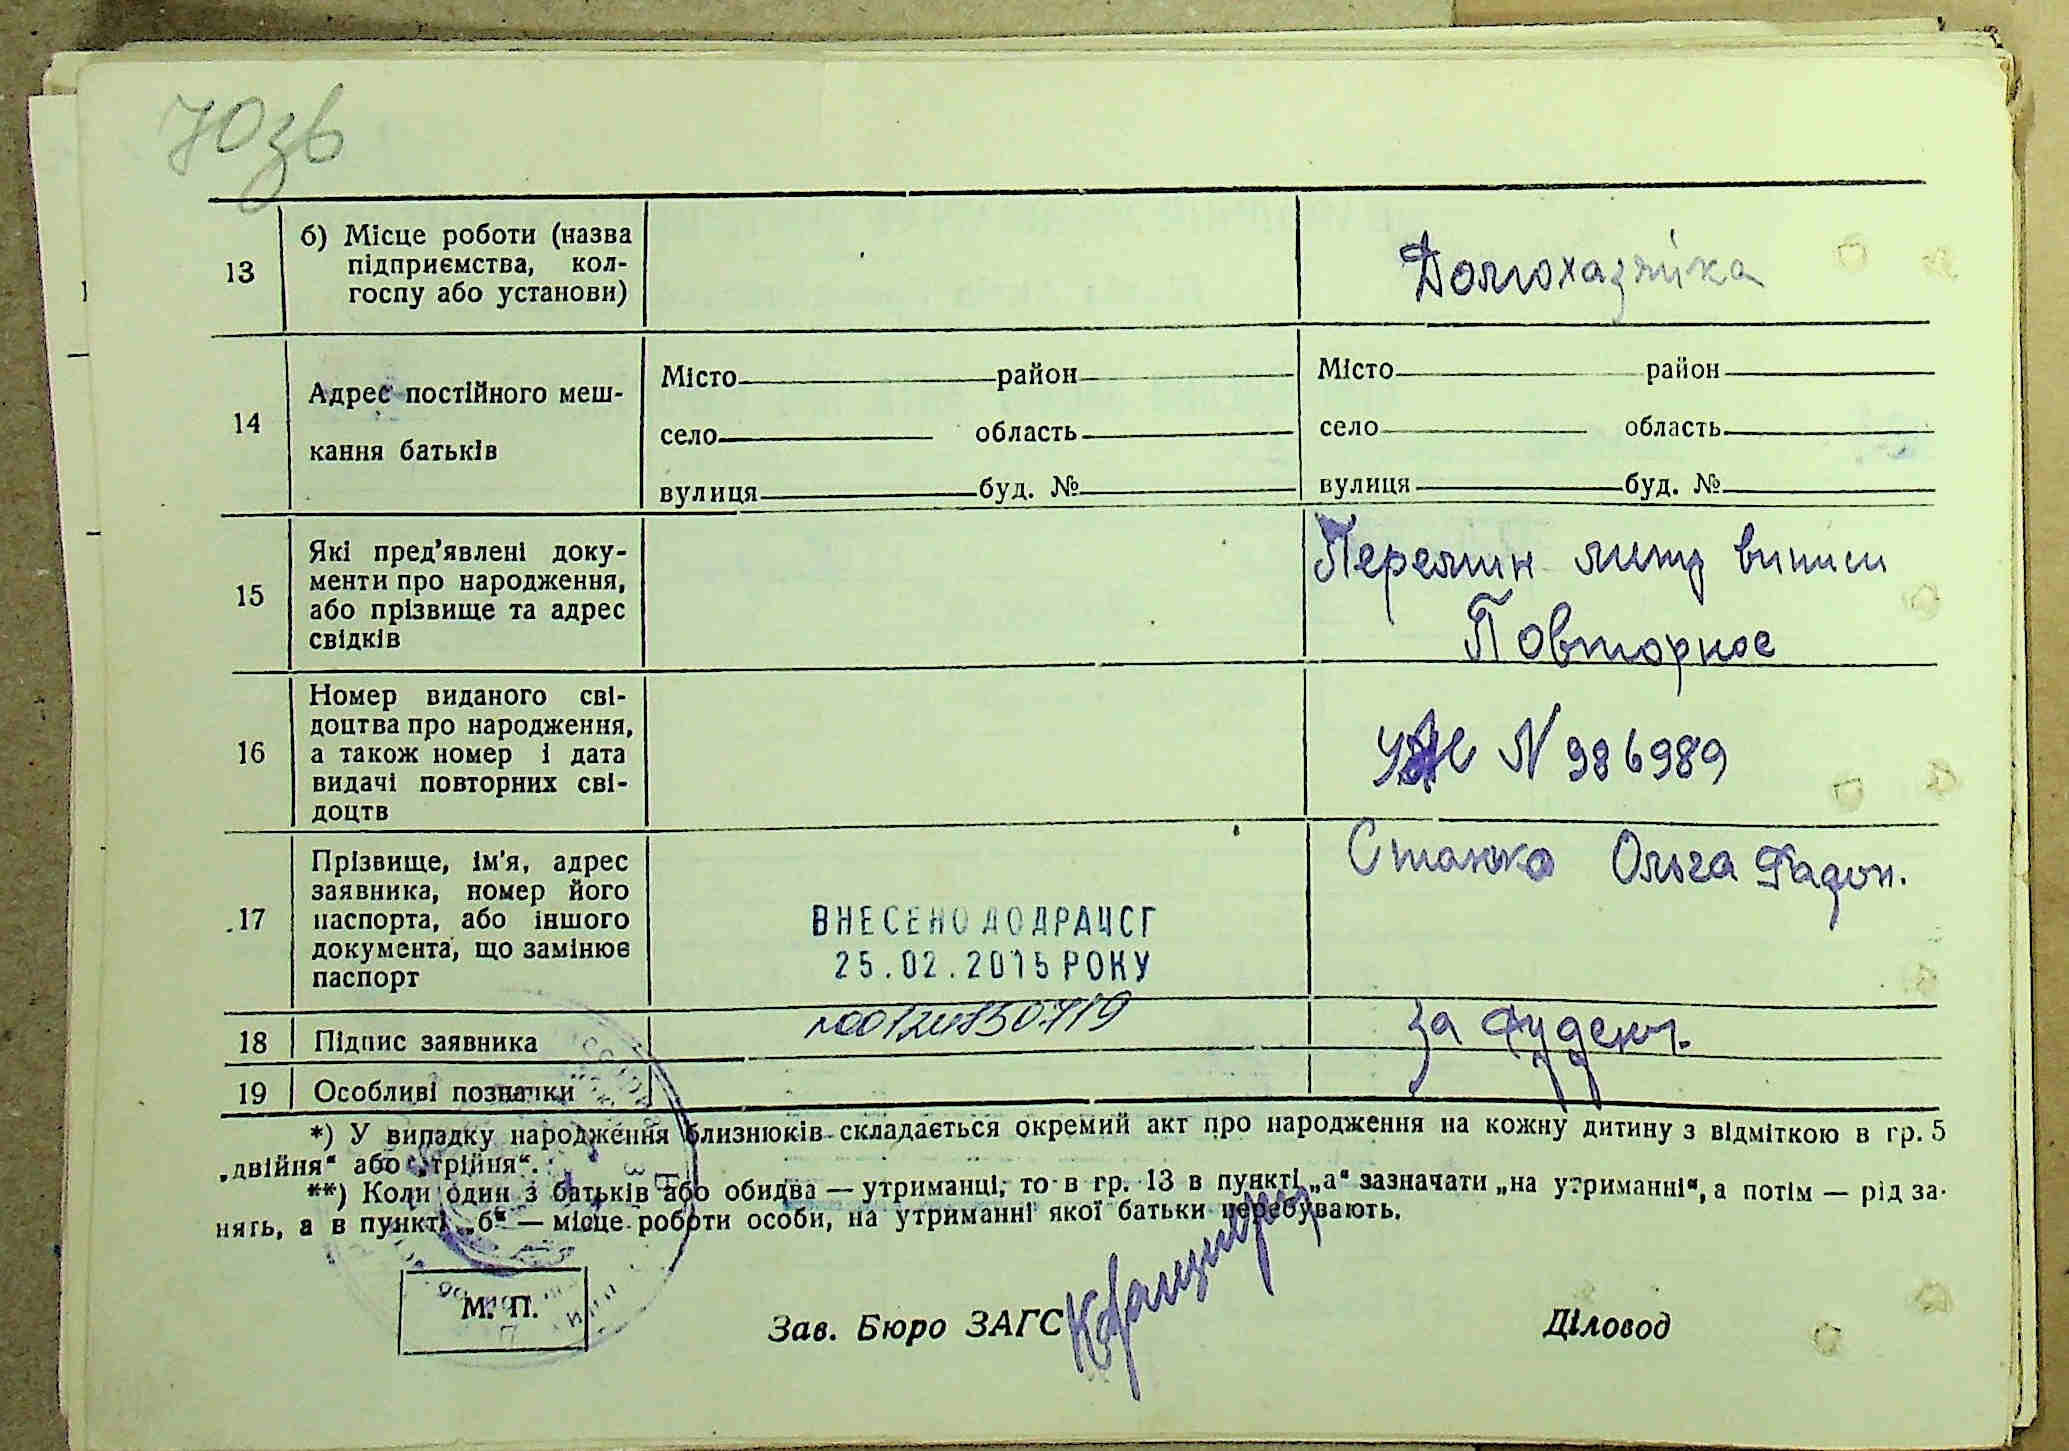 70зв
13
б) Місце роботи (назва
підприємства, кол-
госпу або установи)
Домохазяйка
14
Адрес постійного меш-
кання батьків
Місто район
село область
вулиця буд. №
Місто район
село область
вулиця буд. №
15
Які пред’явлені доку-
менти про народження,
або прізвище та адрес
свідків
виписи
Повторное
16
Номер виданого сві-
доцтва про народження,
а також номер і дата
видачі повторних сві-
доцтв
N 986989
17
Прізвище, ім'я, адрес
заявника, номер його
паспорта, або іншого
документа, що замінює
паспорт
ВНЕСЕНО ДО ДРАЦСГ
25.02.2015 РОКУ
Станко Ольга
18
Підпис заявника
за
19
Особливі позначки
*) У випадку народження близнюків складається окремий акт про народження на кожну дитину з відміткою в гр. 5
„двійня“ або „трійня“.
**) Коли один з батьків або обидва — утриманці, то в гр. 13 в пункті „а“ зазначати „на утриманні“, а потім — рід за-
нять, а в пункті „б“ — місце роботи особи, на утриманні якої батьки перебувають.
М. П.
Зав. Бюро ЗАГС
Діловод